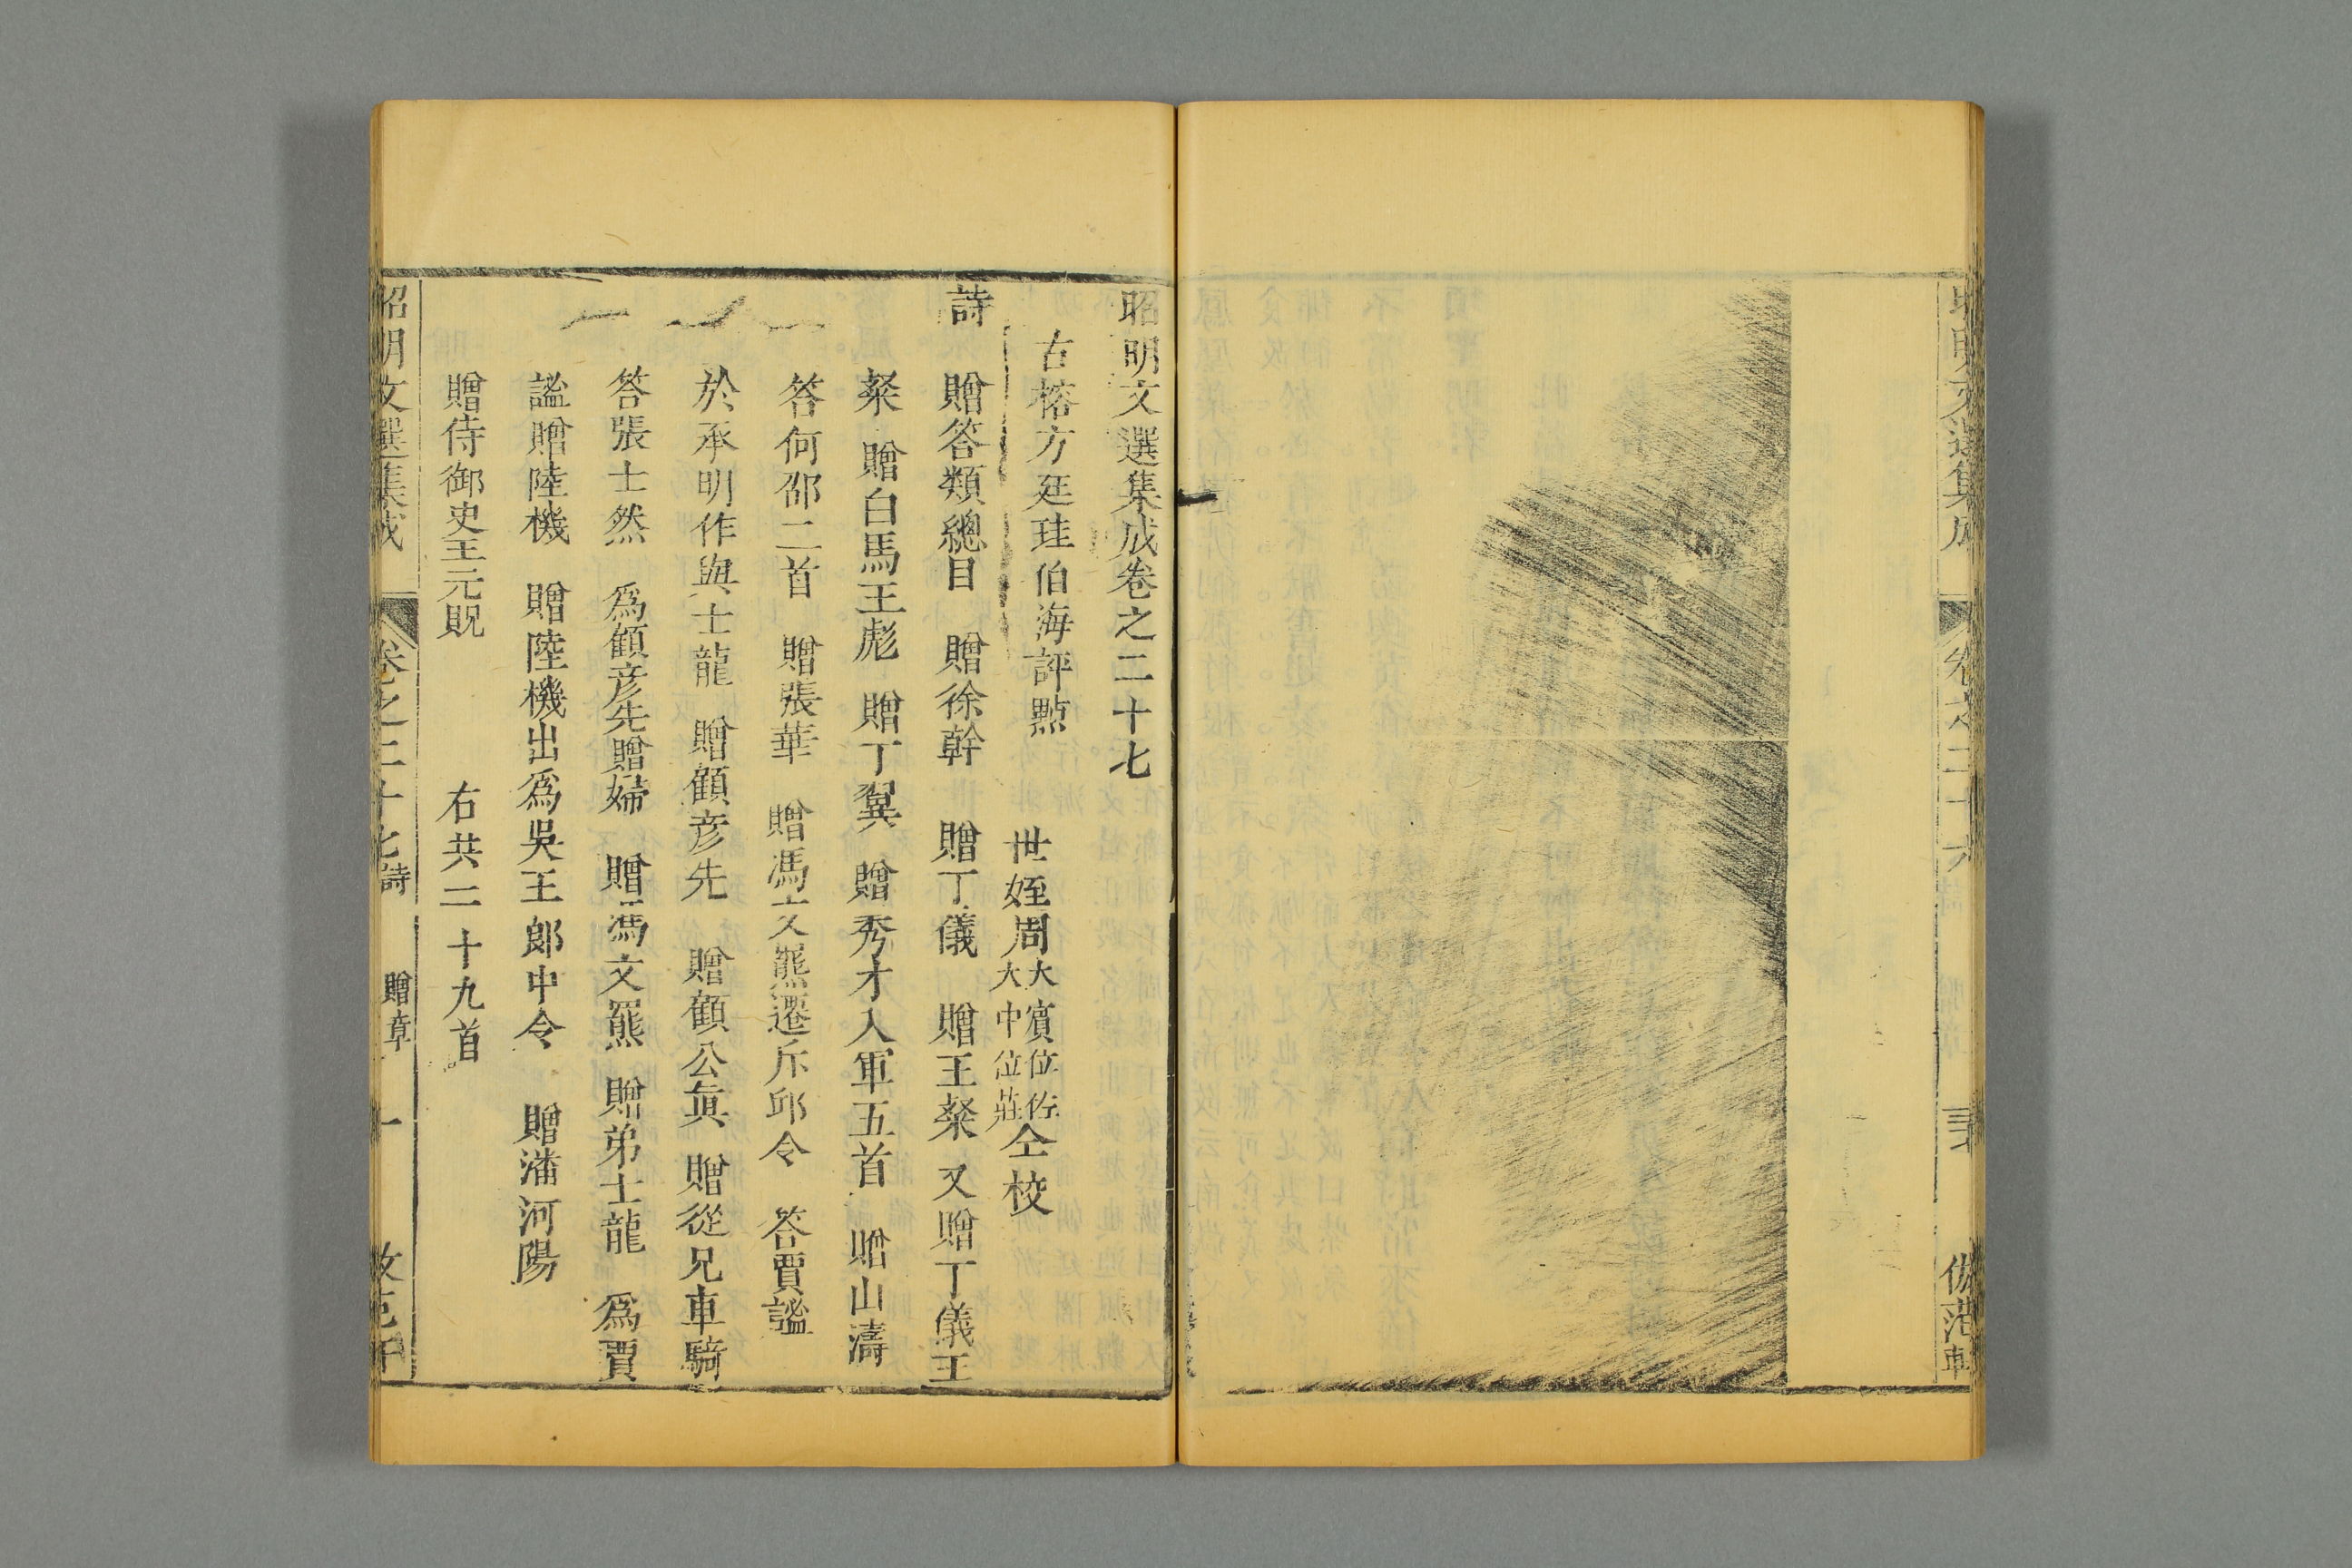 昭明文選集成卷之二十七
古榕方廷珪伯海評點　世姪周大賓位佐大中位莊仝校
詩
贈答類總目　贈徐幹　贈丁儀　贈王粲　又贈丁儀王
粲　贈白馬王彪　贈丁翼　贈秀才入軍五首　贈山濤
答何邵二首　贈張華　贈馮文羆遷斥邱令　答賈謐
於承明作與士龍　贈顧彦先　贈顧公眞　贈從兄車騎
答張士然　爲顧彦先贈婦　贈馮文羆　贈弟士龍　爲賈
謐贈陸機　贈陸機出爲吳王郎中令　贈潘河陽
贈侍御史王元貺　右共二十九首
昭明文選集成　卷之二十七　詩　贈章　一